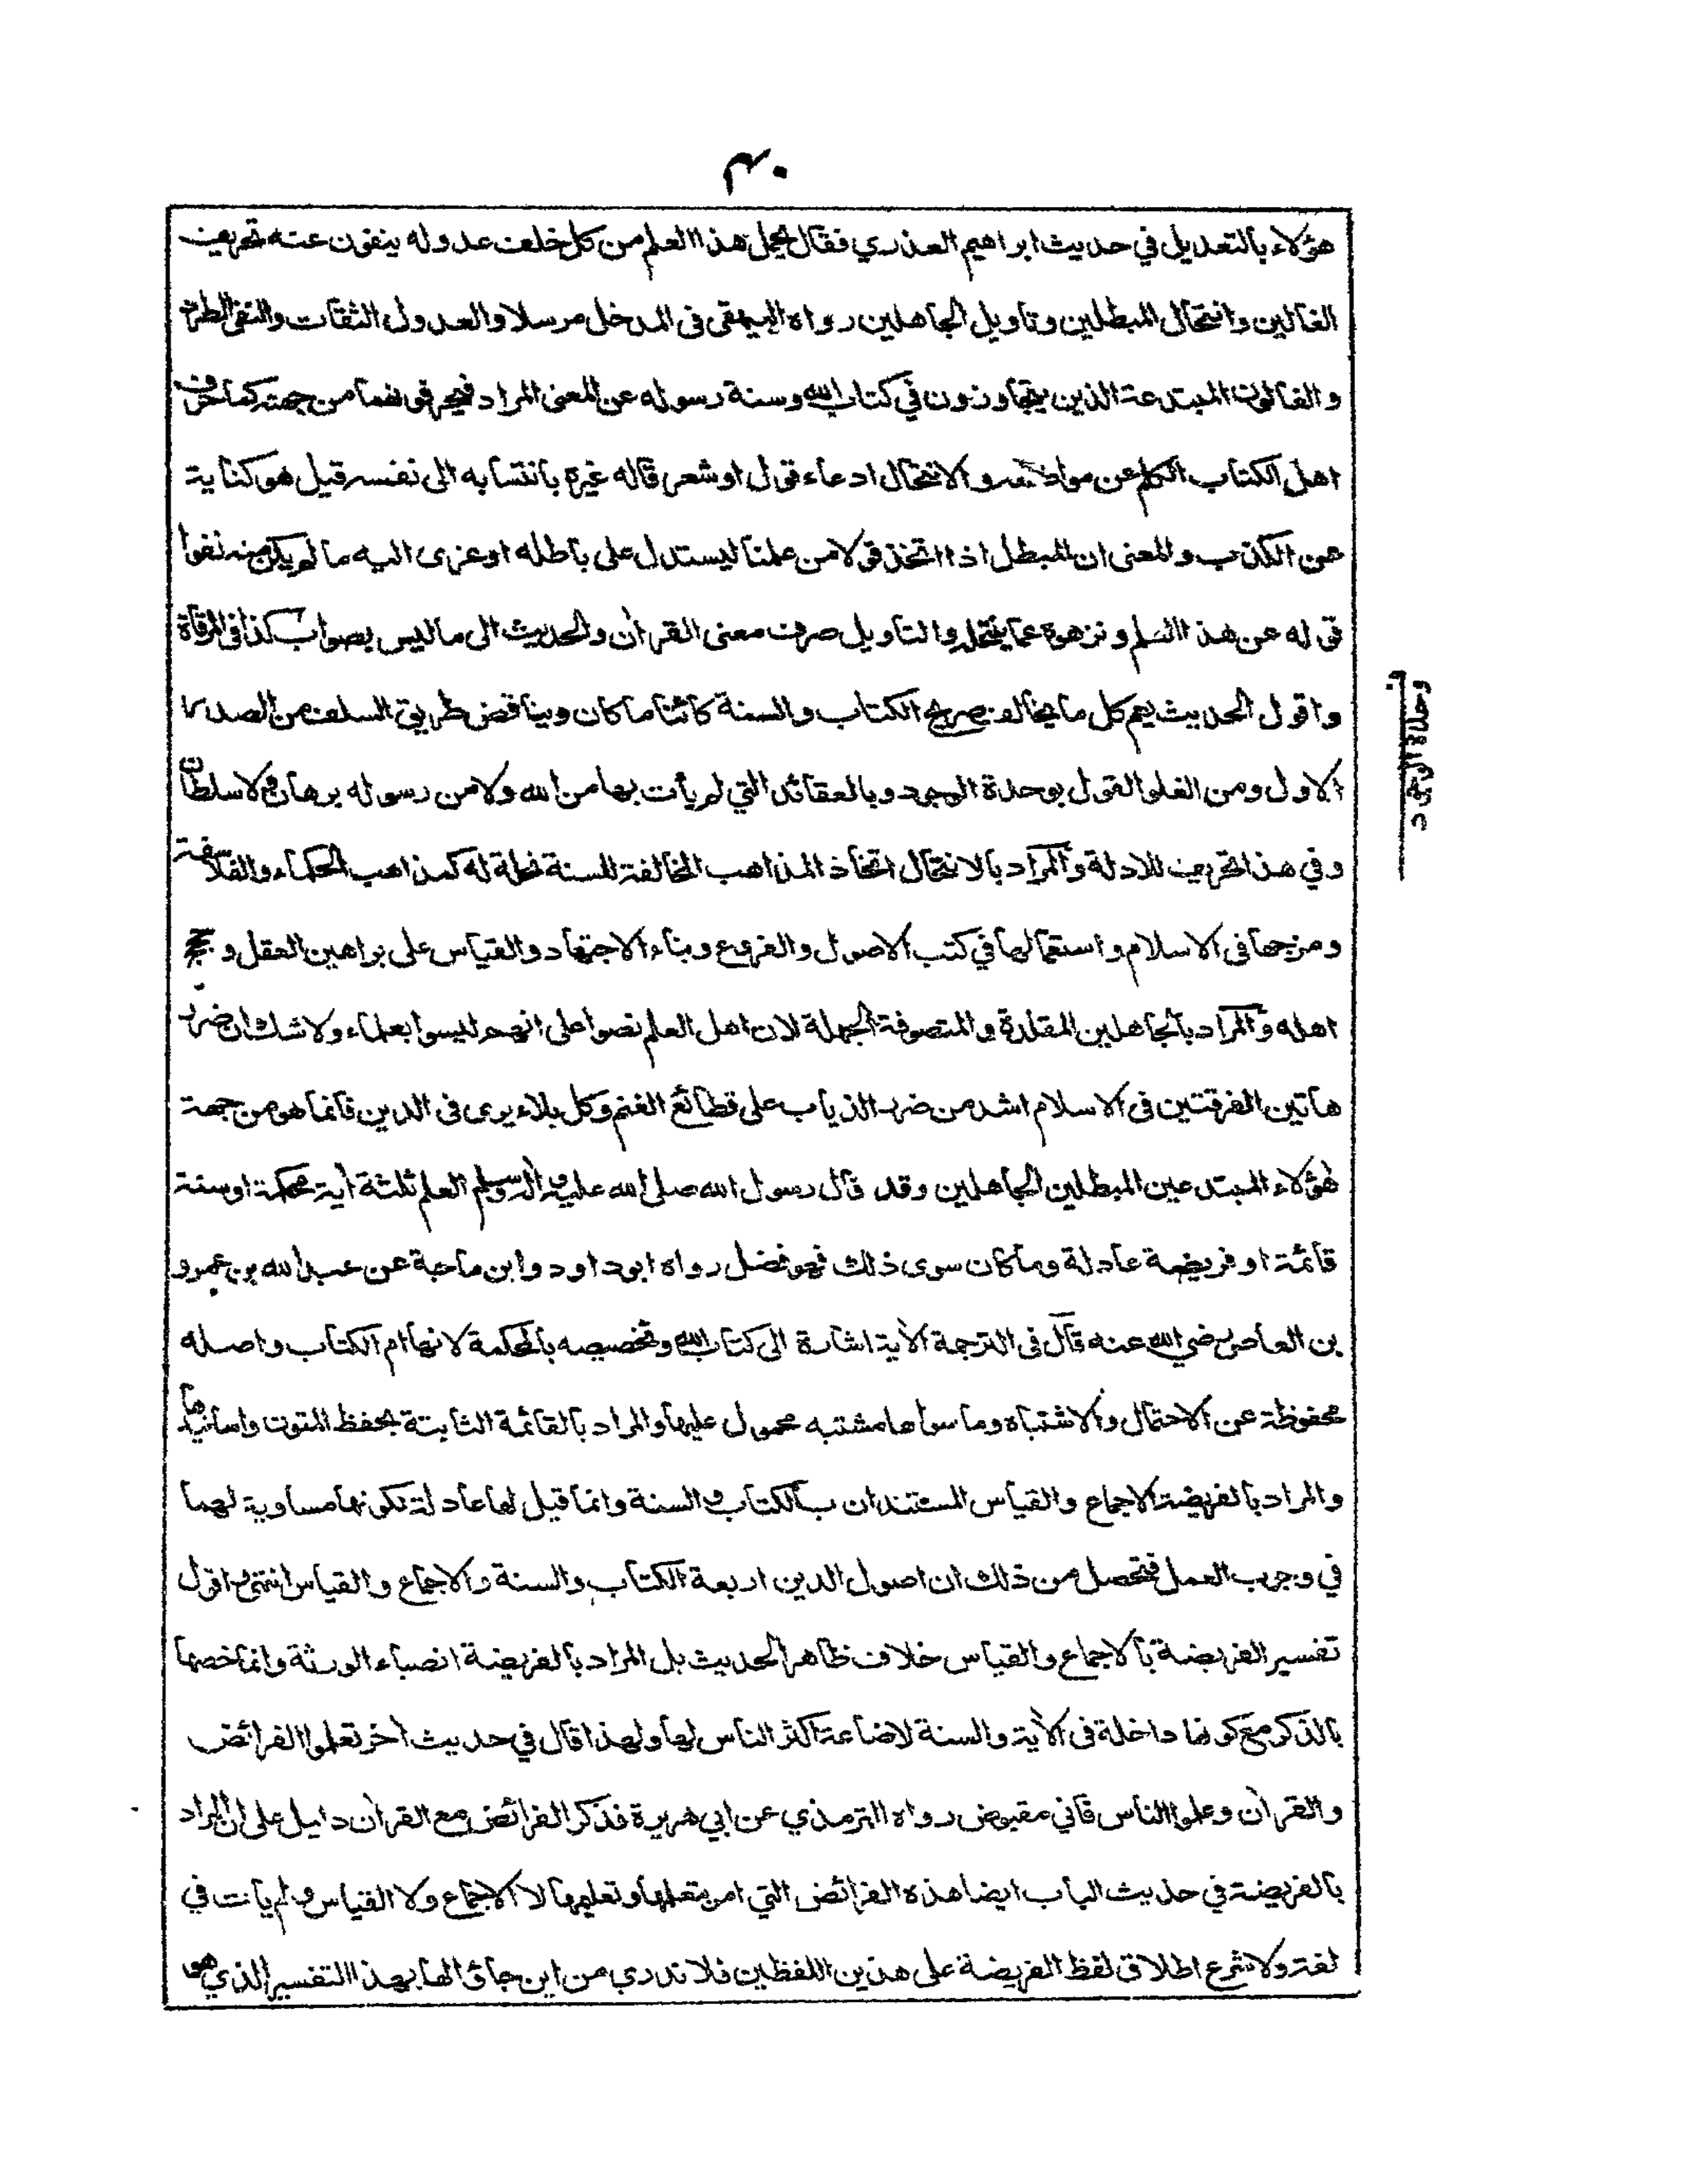 ٤٠
هؤلاء بالتعديل في حديث ابراهيم العذري فقال يحمل هذا العلم من كل خلف عدوله ينفون عنه تحريف
الغالين وانتحال المبطلين وتاويل الجاهلين رواه البيهقي في المدخل مرسلا والعدول الثقات والنفي الطرد
والغالون المبتدعة الذين يتجاوزون في كتاب الله وسنة رسوله عن المعنى المراد فيحرفونهما من جهته كما حرف
اهل الكتاب الكلم عن مواضعه والانتحال ادعاء قول او شعر قاله غيره بانتسابه الى نفسه قيل هو كناية
عن الكذب والمعنى ان المبطل اذا اتخذ قولا من علمنا ليستدل على باطله او عزى اليه ما لم يكن منه نفوا
قوله عن هذا العلم ونزهوه عما ينتحله والتاويل صرف معنى القران والحديث الى ما ليس بصواب كذا في المرقاة
واقول الحديث يعم كل ما يخالف صريح الكتاب والسنة كائنا ما كان ويناقض طريق السلف من الصدر
الاول ومن الغلو القول بوحدة الوجود وبالعقائد التي لم يأت بها من الله ولا من رسوله برهان ولا سلطان
وفي هذا تحريف للادلة والمراد بالانتحال اتخاذ المذاهب المخالفة للسنة نحلة له كمذاهب الحكماء والفلاسفة
ومزجها في الاسلام واستعمالها في كتب الاصول والفروع وبناء الاجتهاد والقياس على براهين العقل و حجج
اهله والمراد بالجاهلين المقلدة والمتصوفة الجهلة لان اهل العلم نصوا على انهم ليسوا بعلماء ولا شك ان ضرر
هاتين الفرقتين في الاسلام اشد من ضرر الذياب على قطائع الغنم وكل بلاء يرى في الدين فانما هو من جهة
هؤلاء المبتدعين المبطلين الجاهلين وقد قال رسول الله صلى الله عليه واله وسلم العلم ثلثة اية محكمة او سنة
قائمة او فريضة عادلة وما كان سوى ذلك فهو فضل رواه ابو داود وابن ماجة عن عبد الله بن عمرو
بن العاص رضي الله عنه قال في الترجمة الاية اشارة الى كتاب الله وتخصيصه بالمحكمة لانها ام الكتاب واصله
محفوظة عن الاحتمال والاشتباه وما سواها مشتبه محمول عليها والمراد بالقائمة الثابتة بحفظ المتون واسانيدها
والمراد بالفريضة الاجماع والقياس المستندان بالكتاب والسنة وانما قيل لها عادلة لكونها مساوية لهما
في وجوب العمل فتحصل من ذلك ان اصول الدين اربعة الكتاب والسنة والاجماع والقياس انتهى واقول
تفسير الفريضة بالاجماع والقياس خلاف ظاهر الحديث بل المراد بالفريضة انصباء الورثة وانما خصها
بالذكر مع كونها داخلة في الاية والسنة لاضاعة اكثر الناس لها ولهذا قال في حديث اخر تعلموا الفرائض
والقران وعلموا الناس فاني مقبوض رواه الترمذي عن ابي هريرة فذكر الفرائض مع القران دليل على ان المراد
بالفريضة في حديث الباب ايضا هذه الفرائض التي امر بتعلمها وتعليمها لا الاجماع ولا القياس ولم يات في
لغة ولا شرع اطلاق لفظ الفريضة على هذين اللفظين فلا ندري من اين جاؤا لها بهذا التفسير الذي هو